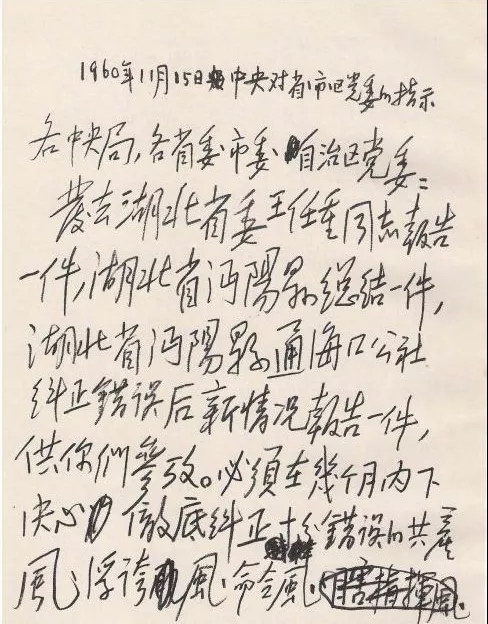 1960年11月15日中央对省市区党委的指示
各中央局,各省委市委自治区党委:
發去湖北省委王任重同志報告
一件,湖北省沔陽县总结一件,
湖北省沔陽县通海口公社
纠正錯误后新情况報告一件,
供你們參攷。必須在幾个月内下
决心徹底纠正十分錯误的共產
風、浮誇風、命令風、瞎指揮風